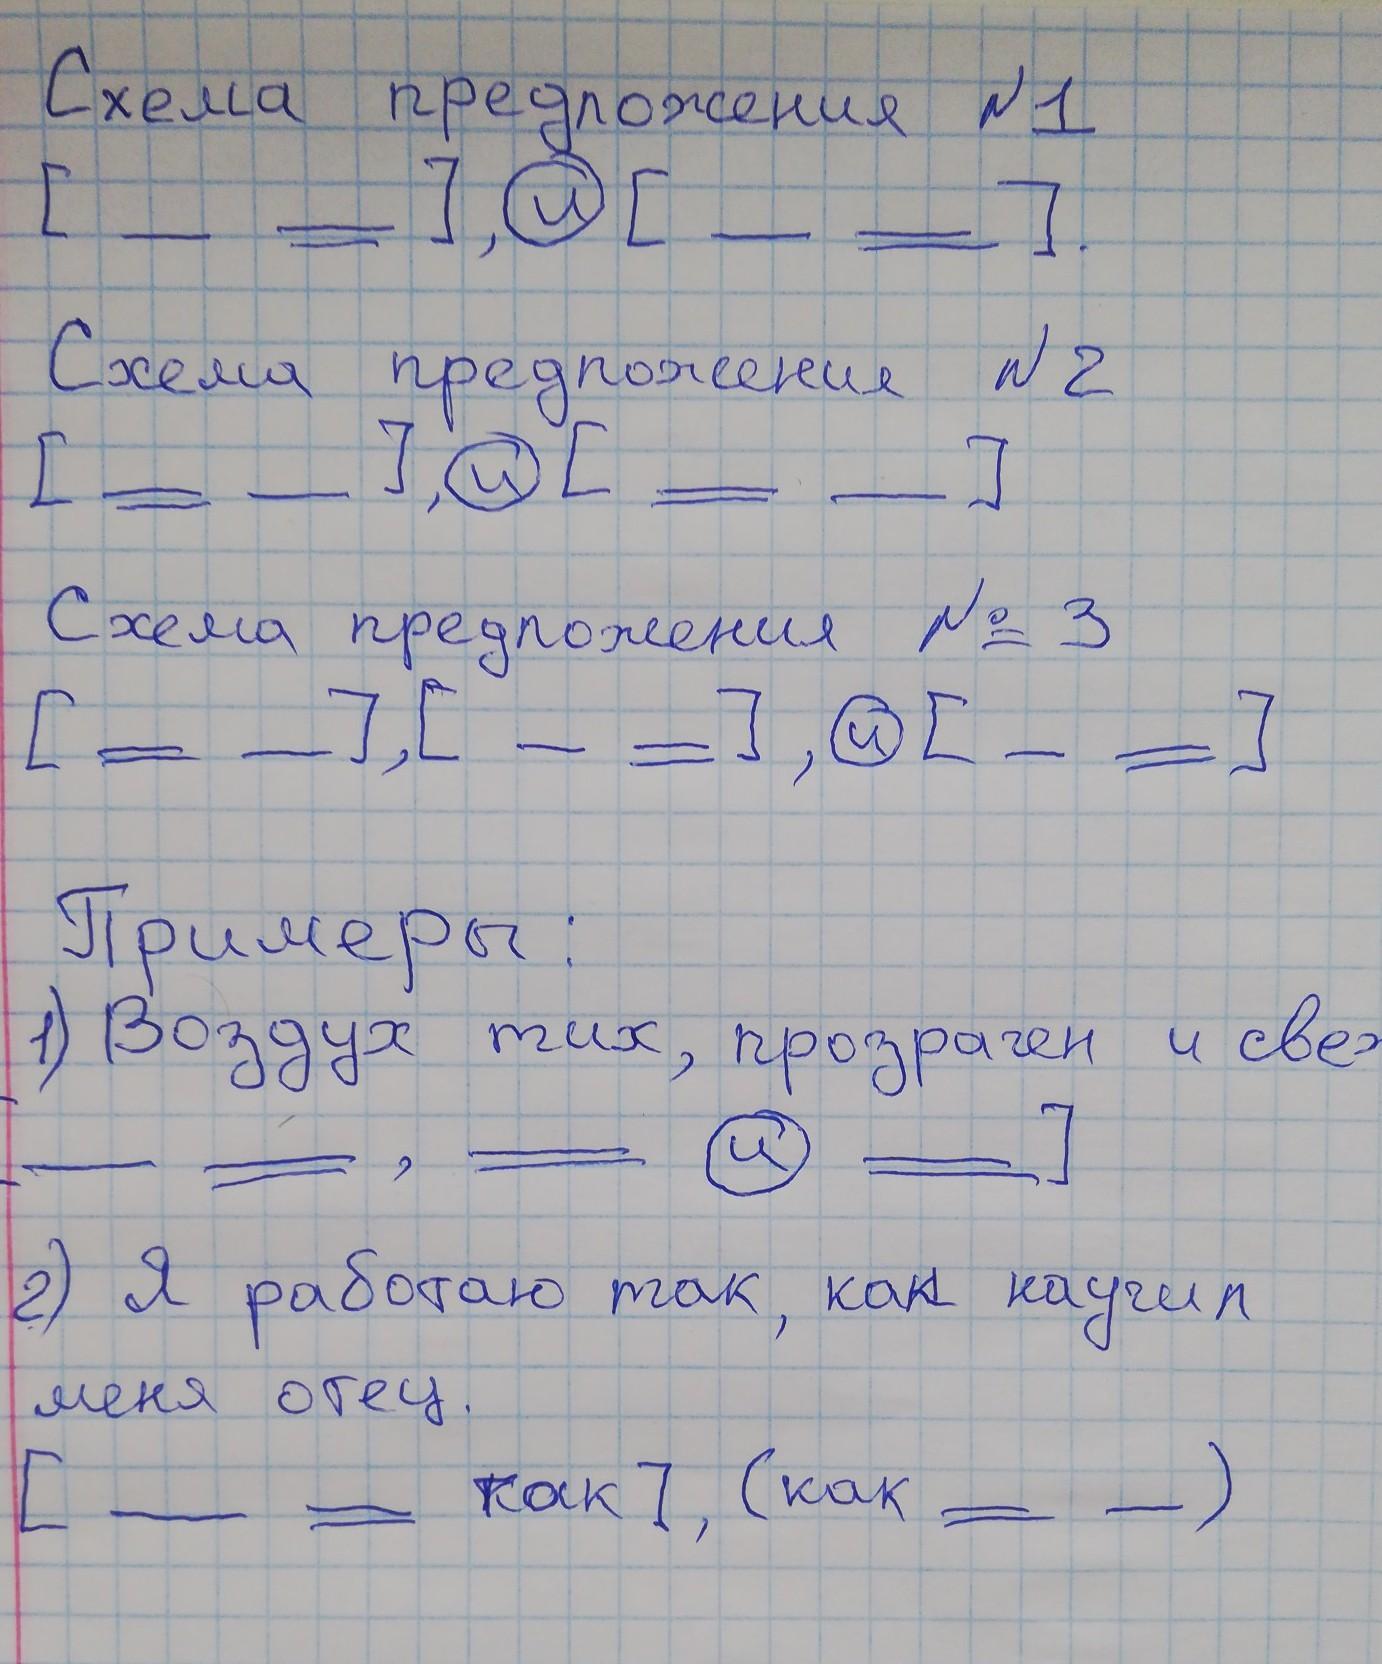 Схема предложения №1
[ — = ], и [ — = ].
Схема предложения №2
[ = — ], и [ = — ]
Схема предложения № 3
[ = — ], [ — = ], и [ — = ]
Примеры:
1) Воздух тих, прозрачен и свеж
[ — = , = и = ]
2) Я работаю так, как научил
меня отец.
[ — = как ], (как = — )